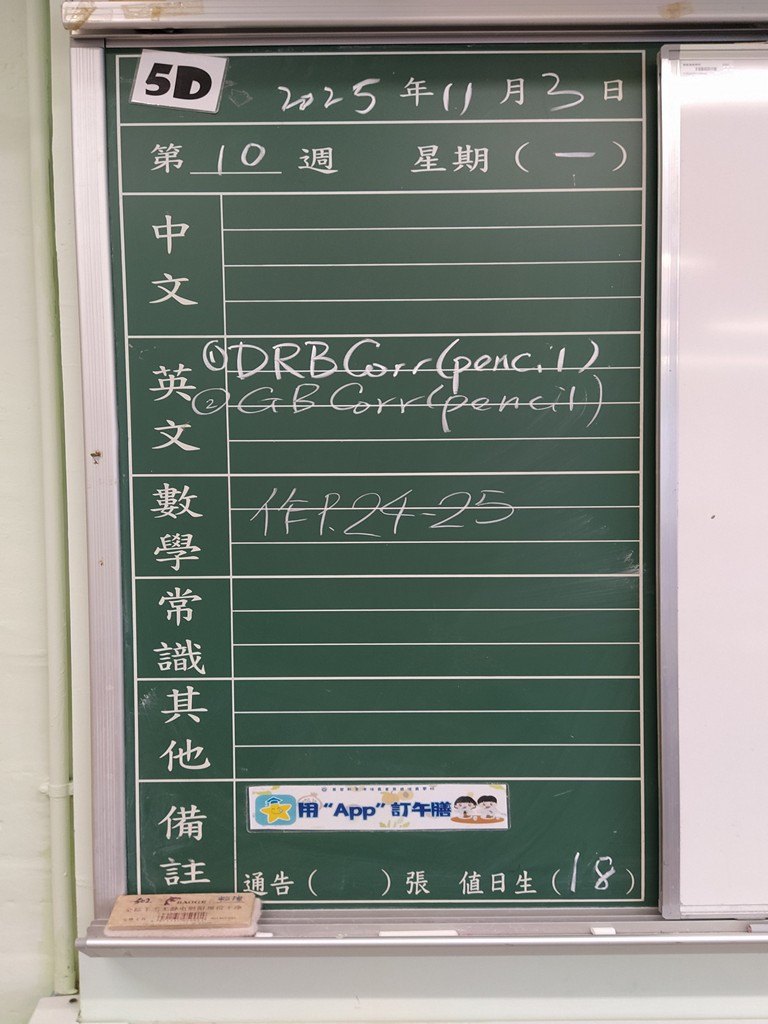 5D
2025年11月3日
第10週 星期(一)
中文
英文
①DRB Corr(pencil)
②GB Corr(pencil)
數學
作P.24-25
常識
其他
備註
用“App”訂午膳
通告( )張 值日生(18)